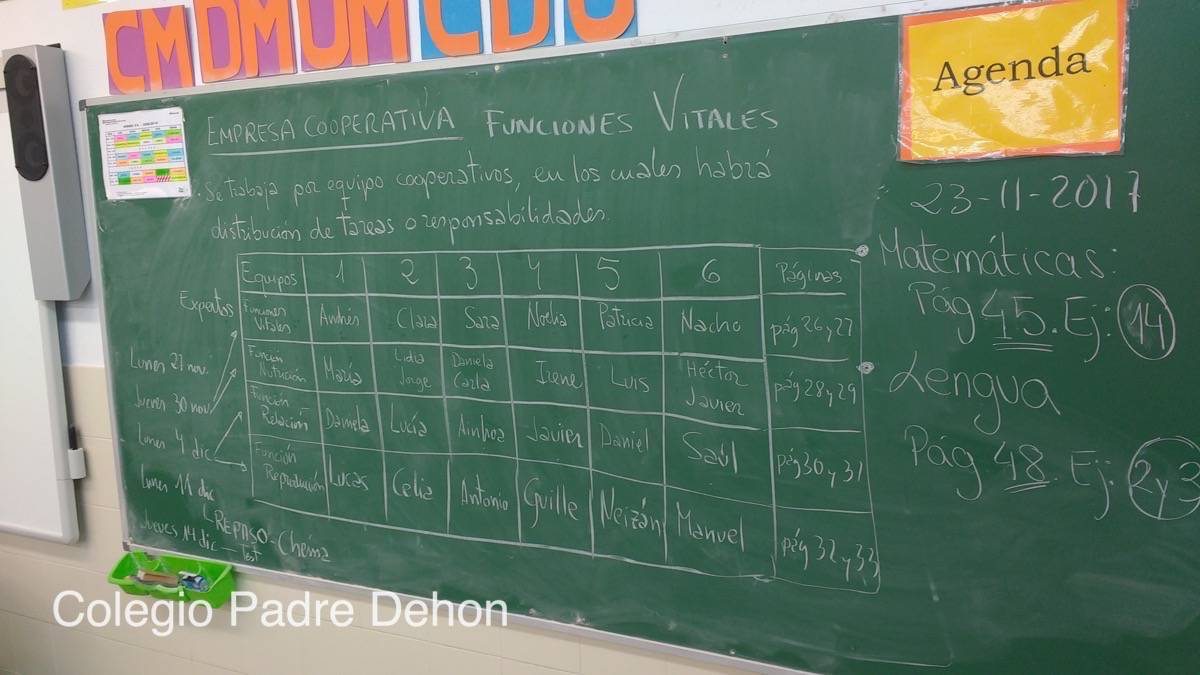 CM DM UM CDU
Agenda
EMPRESA COOPERATIVA FUNCIONES VITALES
· Se trabaja por equipo cooperativos, en los cuales habrá
distribución de tareas o responsabilidades.
Equipos 1 2 3 4 5 6 Páginas
Expertos
Funciones Vitales Andrés Clara Sara Noelia Patricia Nacho pág 26 y 27
Función Nutrición María Lidia Jorge Daniela Carla Irene Luis Héctor Javier pág 28 y 29
Función Relación Daniela Lucía Ainhoa Javier Daniel Saúl pág 30 y 31
Función Reproducción Lucas Celia Antonio Guille Neizán Manuel pág 32 y 33
Lunes 27 nov.
Jueves 30 nov
Lunes 4 dic
Lunes 11 dic
REPASO - Chema
Jueves 14 dic — Test
23-11-2017
Matemáticas:
Pág 45. Ej: 14
Lengua
Pág 48. Ej: 2 y 3
Colegio Padre Dehon